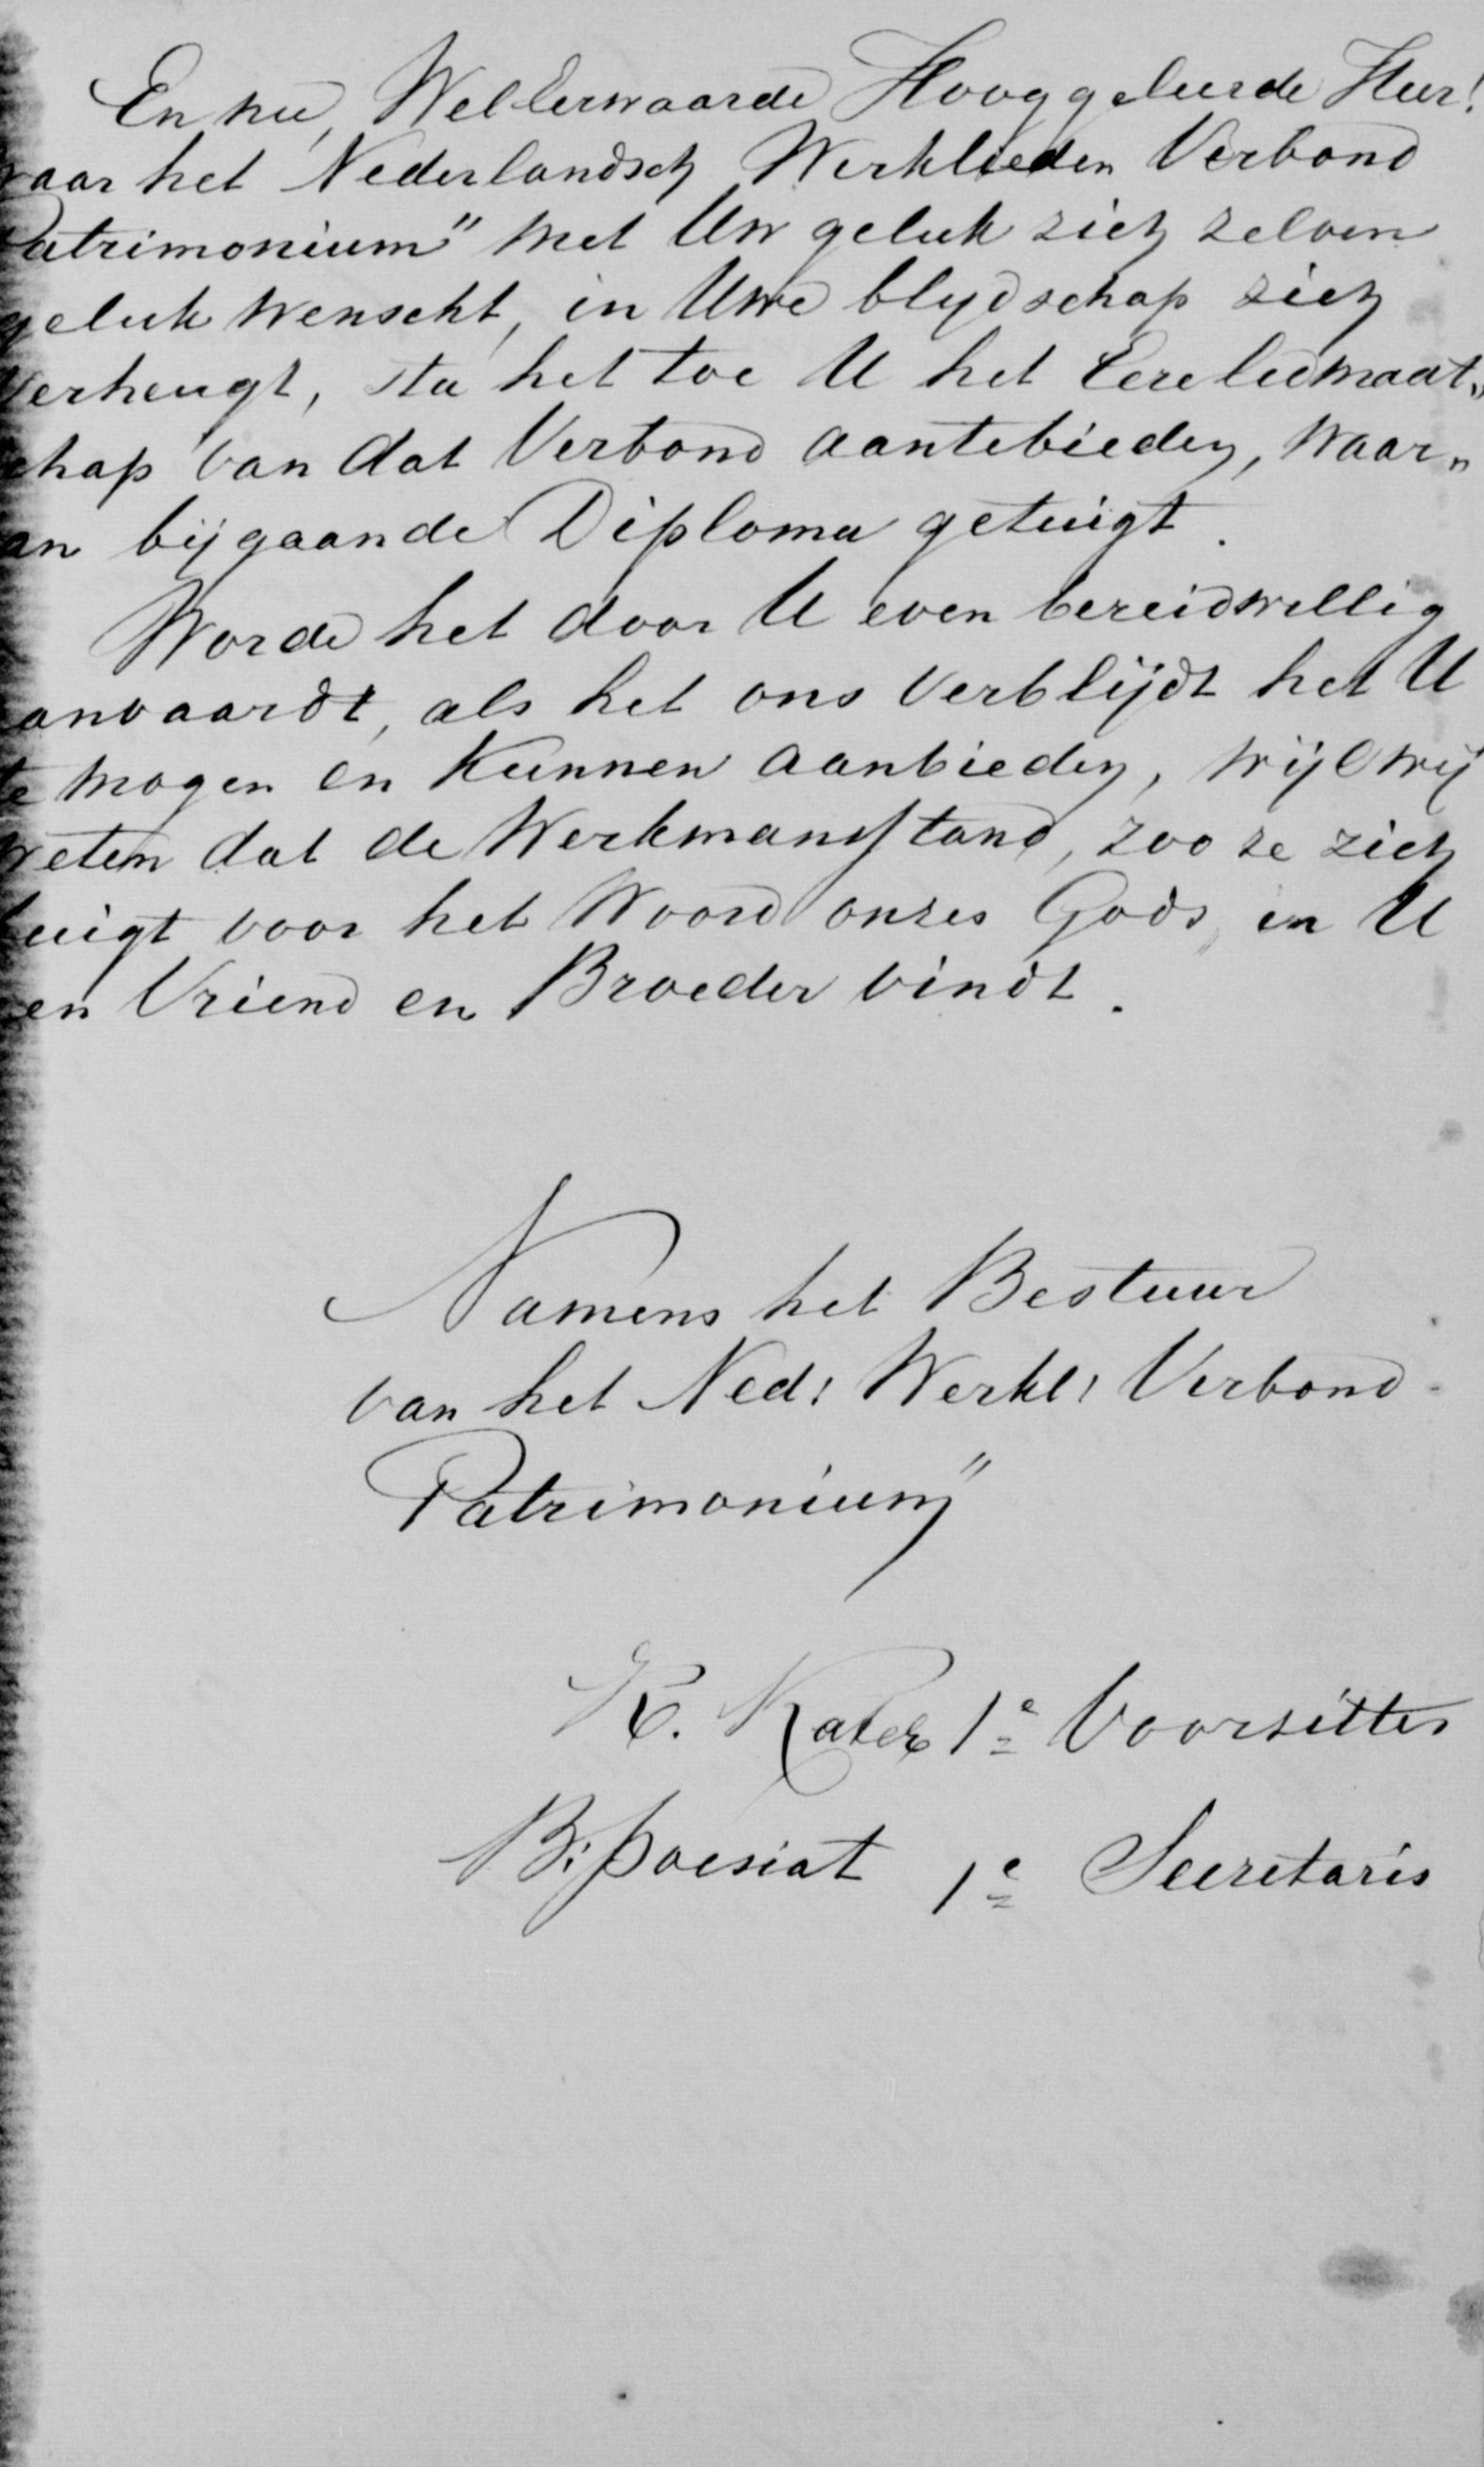 En nu, WelEerwaarde Hooggeleerde Heer!
waar het Nederlandsch Werklieden Verbond
Patrimonium" met Uw geluk zich zelven
geluk wenscht, in Uwe blydschap zich
verheugt, sta het toe U het Eerelidmaat„
schap van dat Verbond aantebieden, waar„
an bijgaande Diploma getuigt.
Worde het door U even bereidwillig
aanvaardt, als het ons verblijdt het U
te mogen en kunnen aanbieden, wijl wij
weten dat de Werkmansstand, zoo ze zich
buigt voor het Woord onzes Gods, in U
een Vriend en Broeder vindt.
Namens het Bestuur
van het Ned: Werkl: Verbond
Patrimonium"
K. Kater 1e Voorzitter
B. Poesiat 1e Secretaris